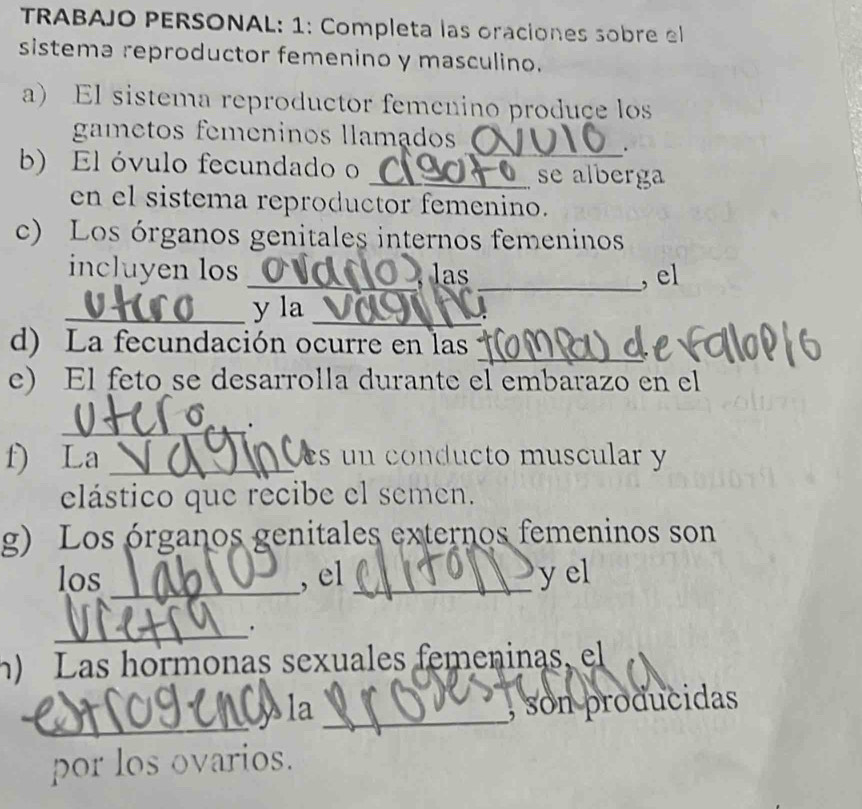 TRABAJO PERSONAL: 1: Completa las oraciones sobre el
sistema reproductor femenino y masculino.
a) El sistema reproductor femenino produce los
gametos femeninos llamados ovulo.
b) El óvulo fecundado o cigoto se alberga
en el sistema reproductor femenino.
c) Los órganos genitales internos femeninos
incluyen los ovarios, las ________, el
utero y la vagina.
d) La fecundación ocurre en las trompas de falopio
e) El feto se desarrolla durante el embarazo en el
utero.
f) La vagina es un conducto muscular y
elástico que recibe el semen.
g) Los órganos genitales externos femeninos son
los labios, el clitoris y el
uretra.
h) Las hormonas sexuales femeninas, el
estrogeno y la progesterona, son producidas
por los ovarios.